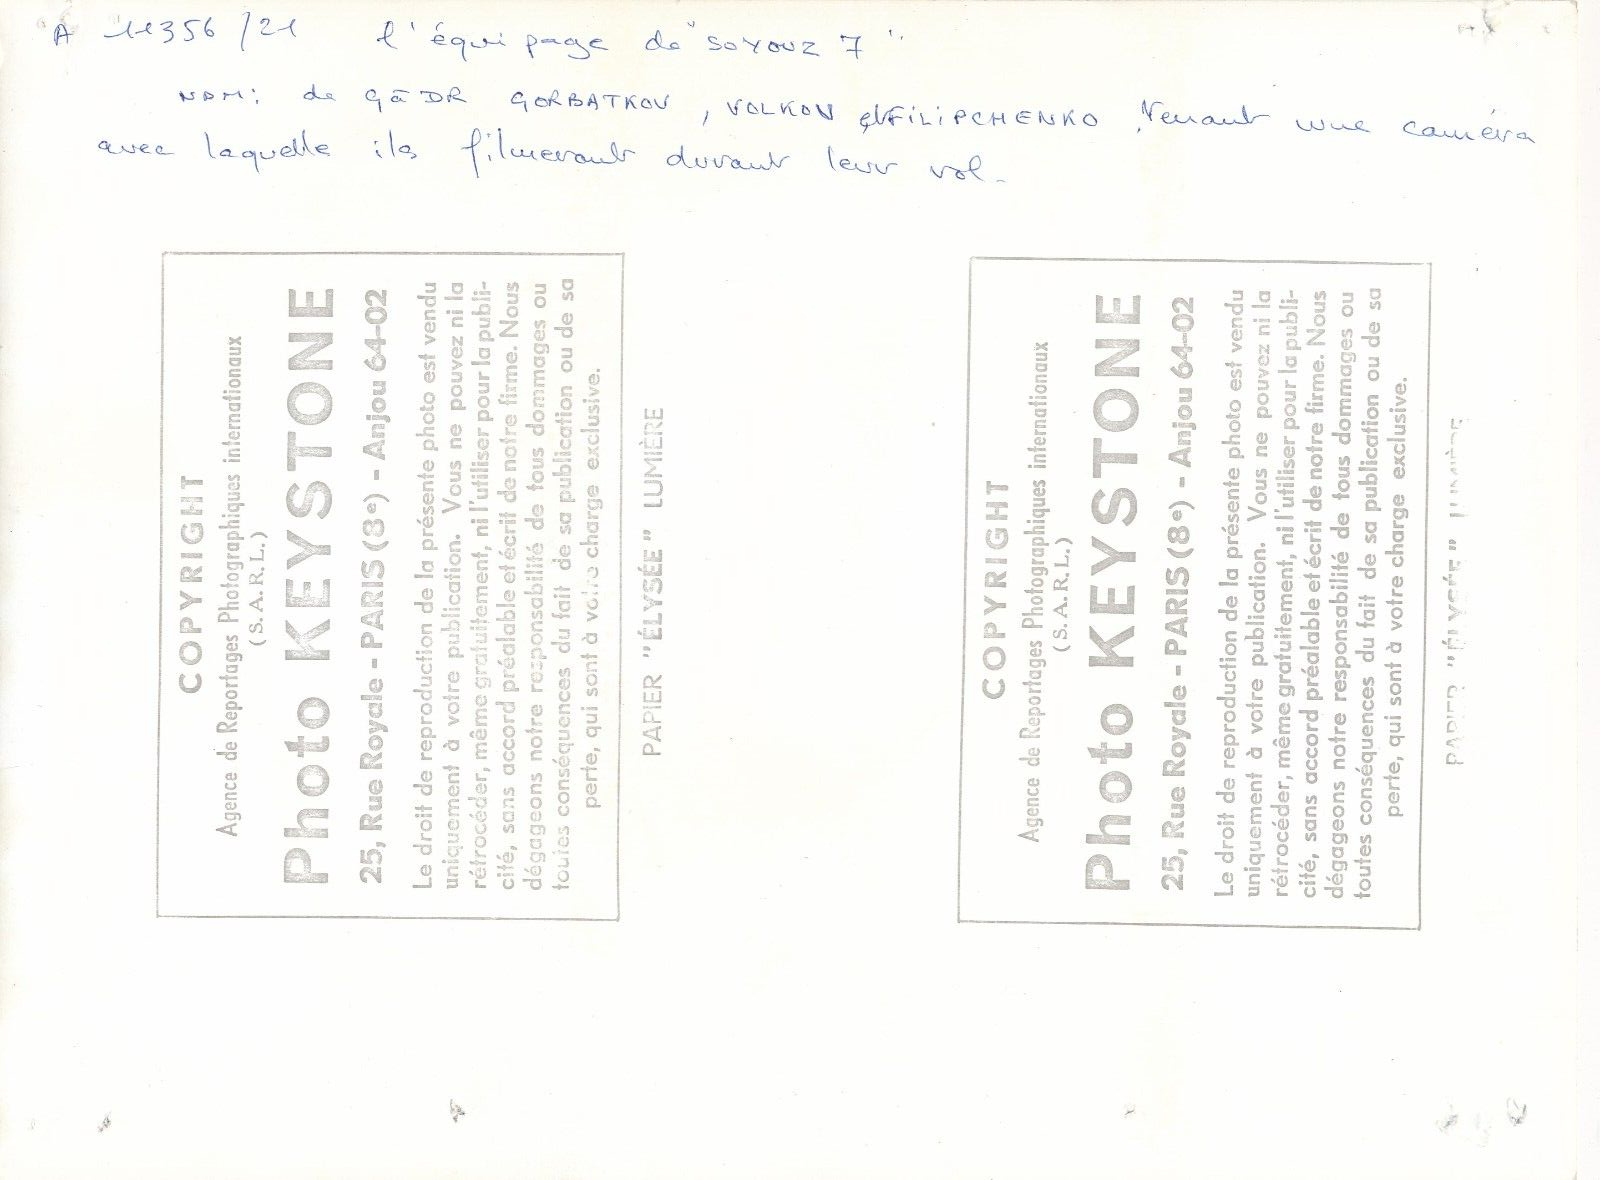 A 11356/21 l'équipage de "SOYOUZ 7"
NDM: de GāDR GORBATKOV, VOLKOV et FILIPCHENKO, Tenant une caméra
avec laquelle ils filmeront durant leur vol.
COPYRIGHT
Agence de Reportages Photographiques internationaux
(S.A.R.L.)
Photo KEYSTONE
25, Rue Royale - PARIS (8e) - Anjou 64-02
Le droit de reproduction de la présente photo est vendu
uniquement à votre publication. Vous ne pouvez ni la
rétrocéder, même gratuitement, ni l'utiliser pour la publi-
cité, sans accord préalable et écrit de notre firme. Nous
dégageons notre responsabilité de tous dommages ou
toutes conséquences du fait de sa publication ou de sa
perte, qui sont à votre charge exclusive.
PAPIER "ÉLYSÉE" LUMIÈRE
COPYRIGHT
Agence de Reportages Photographiques internationaux
(S.A.R.L.)
Photo KEYSTONE
25, Rue Royale - PARIS (8e) - Anjou 64-02
Le droit de reproduction de la présente photo est vendu
uniquement à votre publication. Vous ne pouvez ni la
rétrocéder, même gratuitement, ni l'utiliser pour la publi-
cité, sans accord préalable et écrit de notre firme. Nous
dégageons notre responsabilité de tous dommages ou
toutes conséquences du fait de sa publication ou de sa
perte, qui sont à votre charge exclusive.
PAPIER "ÉLYSÉE" LUMIÈRE